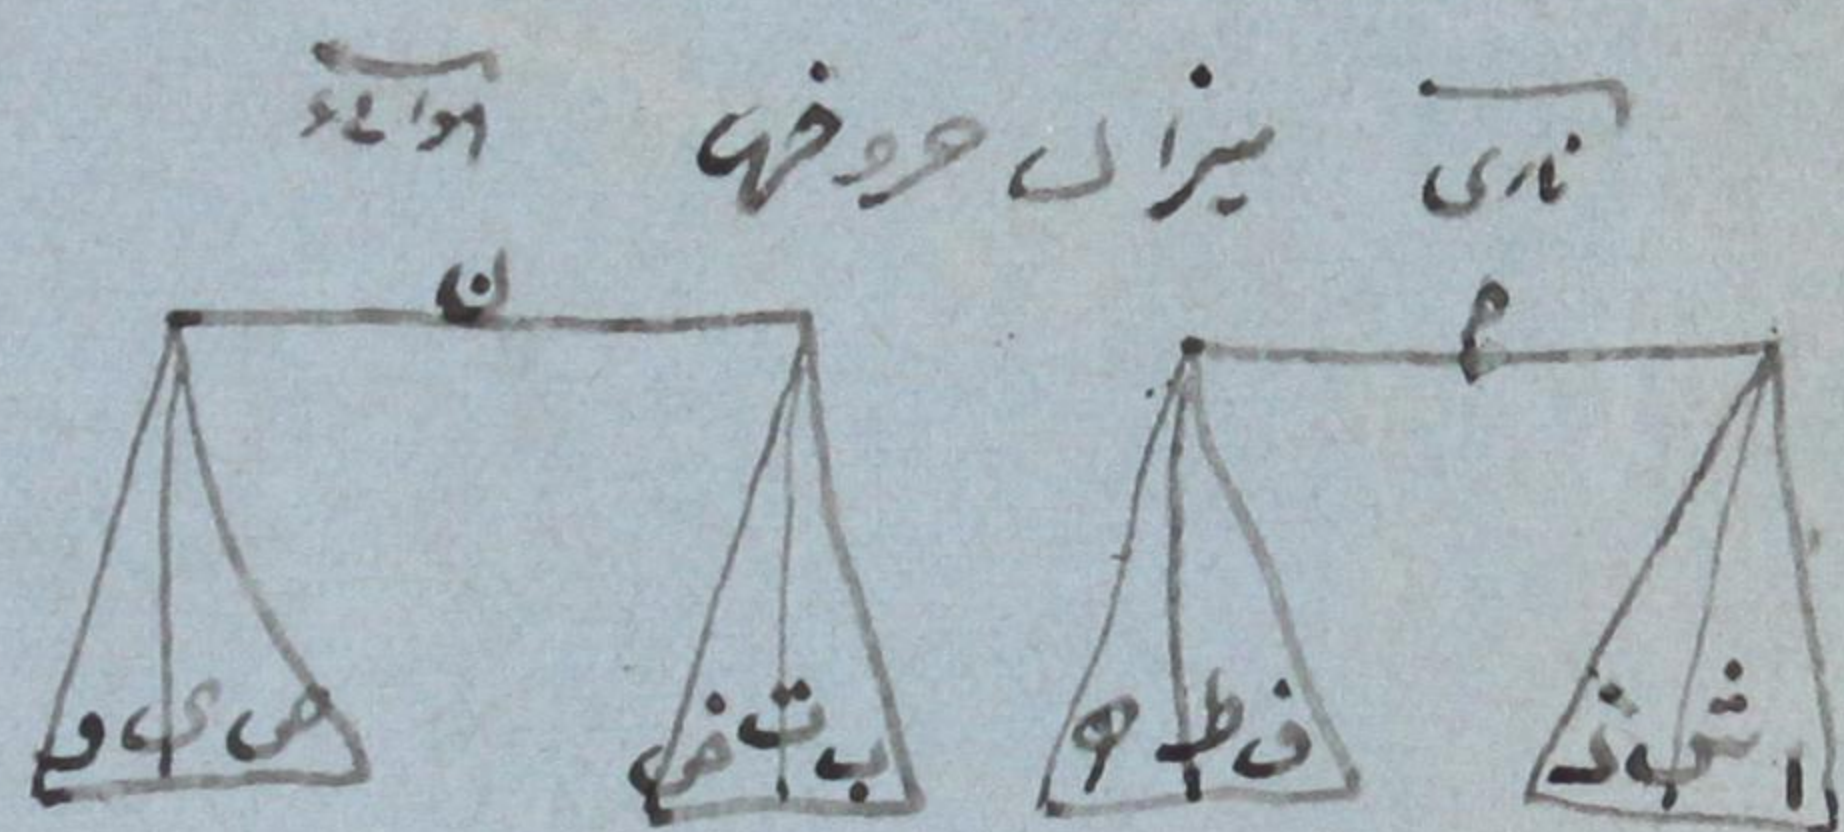 ناری میزان حروفها هوائی
م ن
ا ش ذ ف ط ه ب ت ض ص ی و